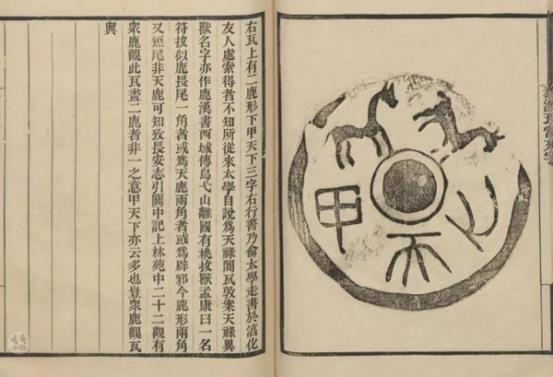 右瓦上有二鹿形下甲天下三字右行書乃俞太學走書於淳化
友人處索得者不知所從來太學自說爲天祿閣瓦敦案天祿異
獸名字亦作鹿漢書西域傳烏弋山離國有桃拔獸孟康曰一名
符拔似鹿長尾一角者或爲天鹿兩角者或爲辟邪今鹿形兩角
又短尾非天鹿可知攷長安志引關中記上林苑中二十二觀有
衆鹿觀此瓦畫二鹿者非一之意甲天下亦云多也豈衆鹿觀瓦
與
甲天下